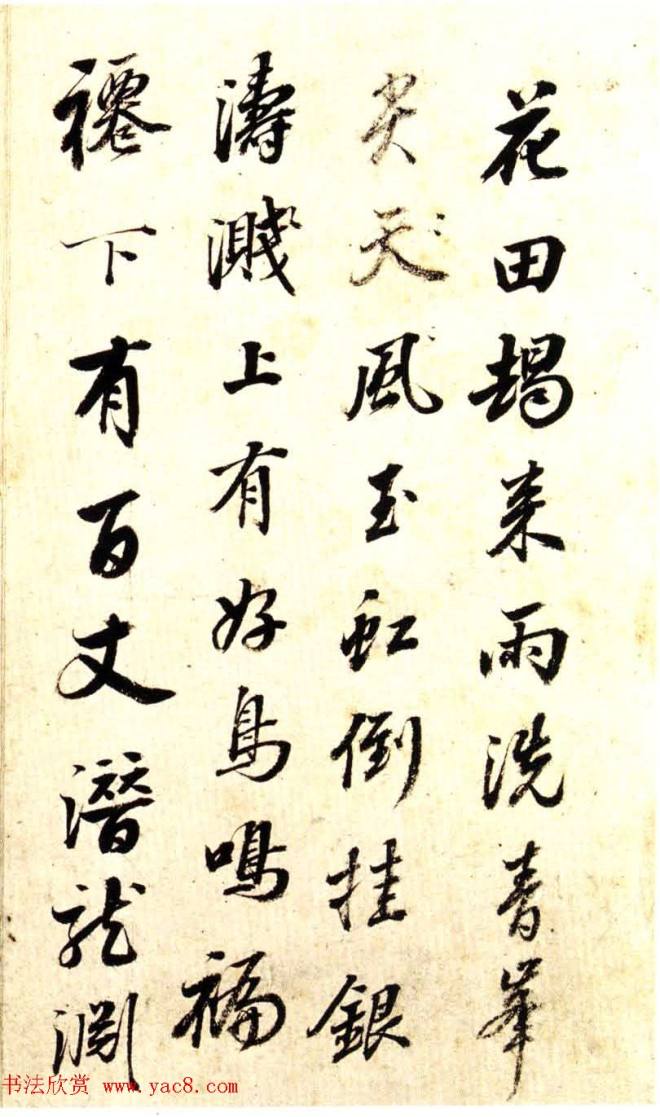 花田朅来雨洗青峯
尖天風玉虹倒挂銀
濤濺上有好鳥鳴褊
褼下有百丈潛龍淵
书法欣赏 www.yac8.com